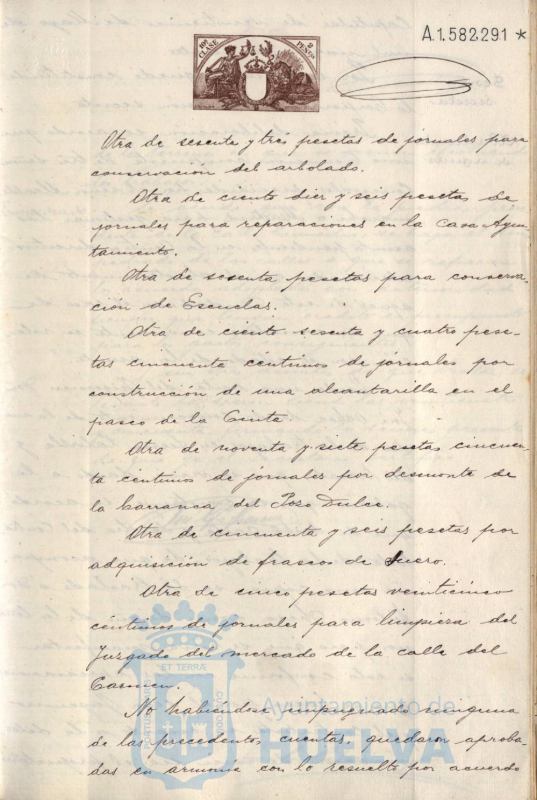 10ª CLASE 2 PESETAS
A.1.582.291 *
Otra de sesenta y tres pesetas de jornales para
conservación del arbolado.
Otra de ciento diez y seis pesetas de
jornales para reparaciones en la Casa Ayun-
tamiento.
Otra de sesenta pesetas para conserva-
ción de Escuelas.
Otra de ciento sesenta y cuatro pese-
tas cincuenta céntimos de jornales por
construcción de una alcantarilla en el
paseo de la Cinta.
Otra de noventa y siete pesetas cincuen-
ta céntimos de jornales por desmonte de
la barranca del Pozo Dulce.
Otra de cincuenta y seis pesetas por
adquisición de frascos de suero.
Otra de cinco pesetas veinticinco
céntimos de jornales para limpieza del
Juzgado del mercado de la calle del
Carmen.
No habiéndose impugnado ninguna
de las precedentes cuentas, quedaron aproba-
das en armonía con lo resuelto por acuerdo
ET TERRÆ
PORTUS MARIS
CUSTODIA
Ayuntamiento de
HUELVA